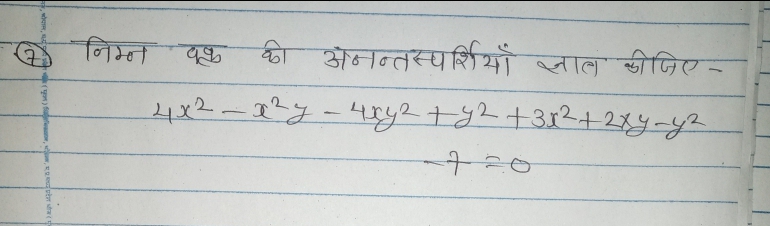 (7) निम्न वक्र की अनन्तस्पर्शियाँ ज्ञात कीजिए -
4x² - x²y - 4xy² + y² + 3x² + 2xy - y²
- 7 = 0